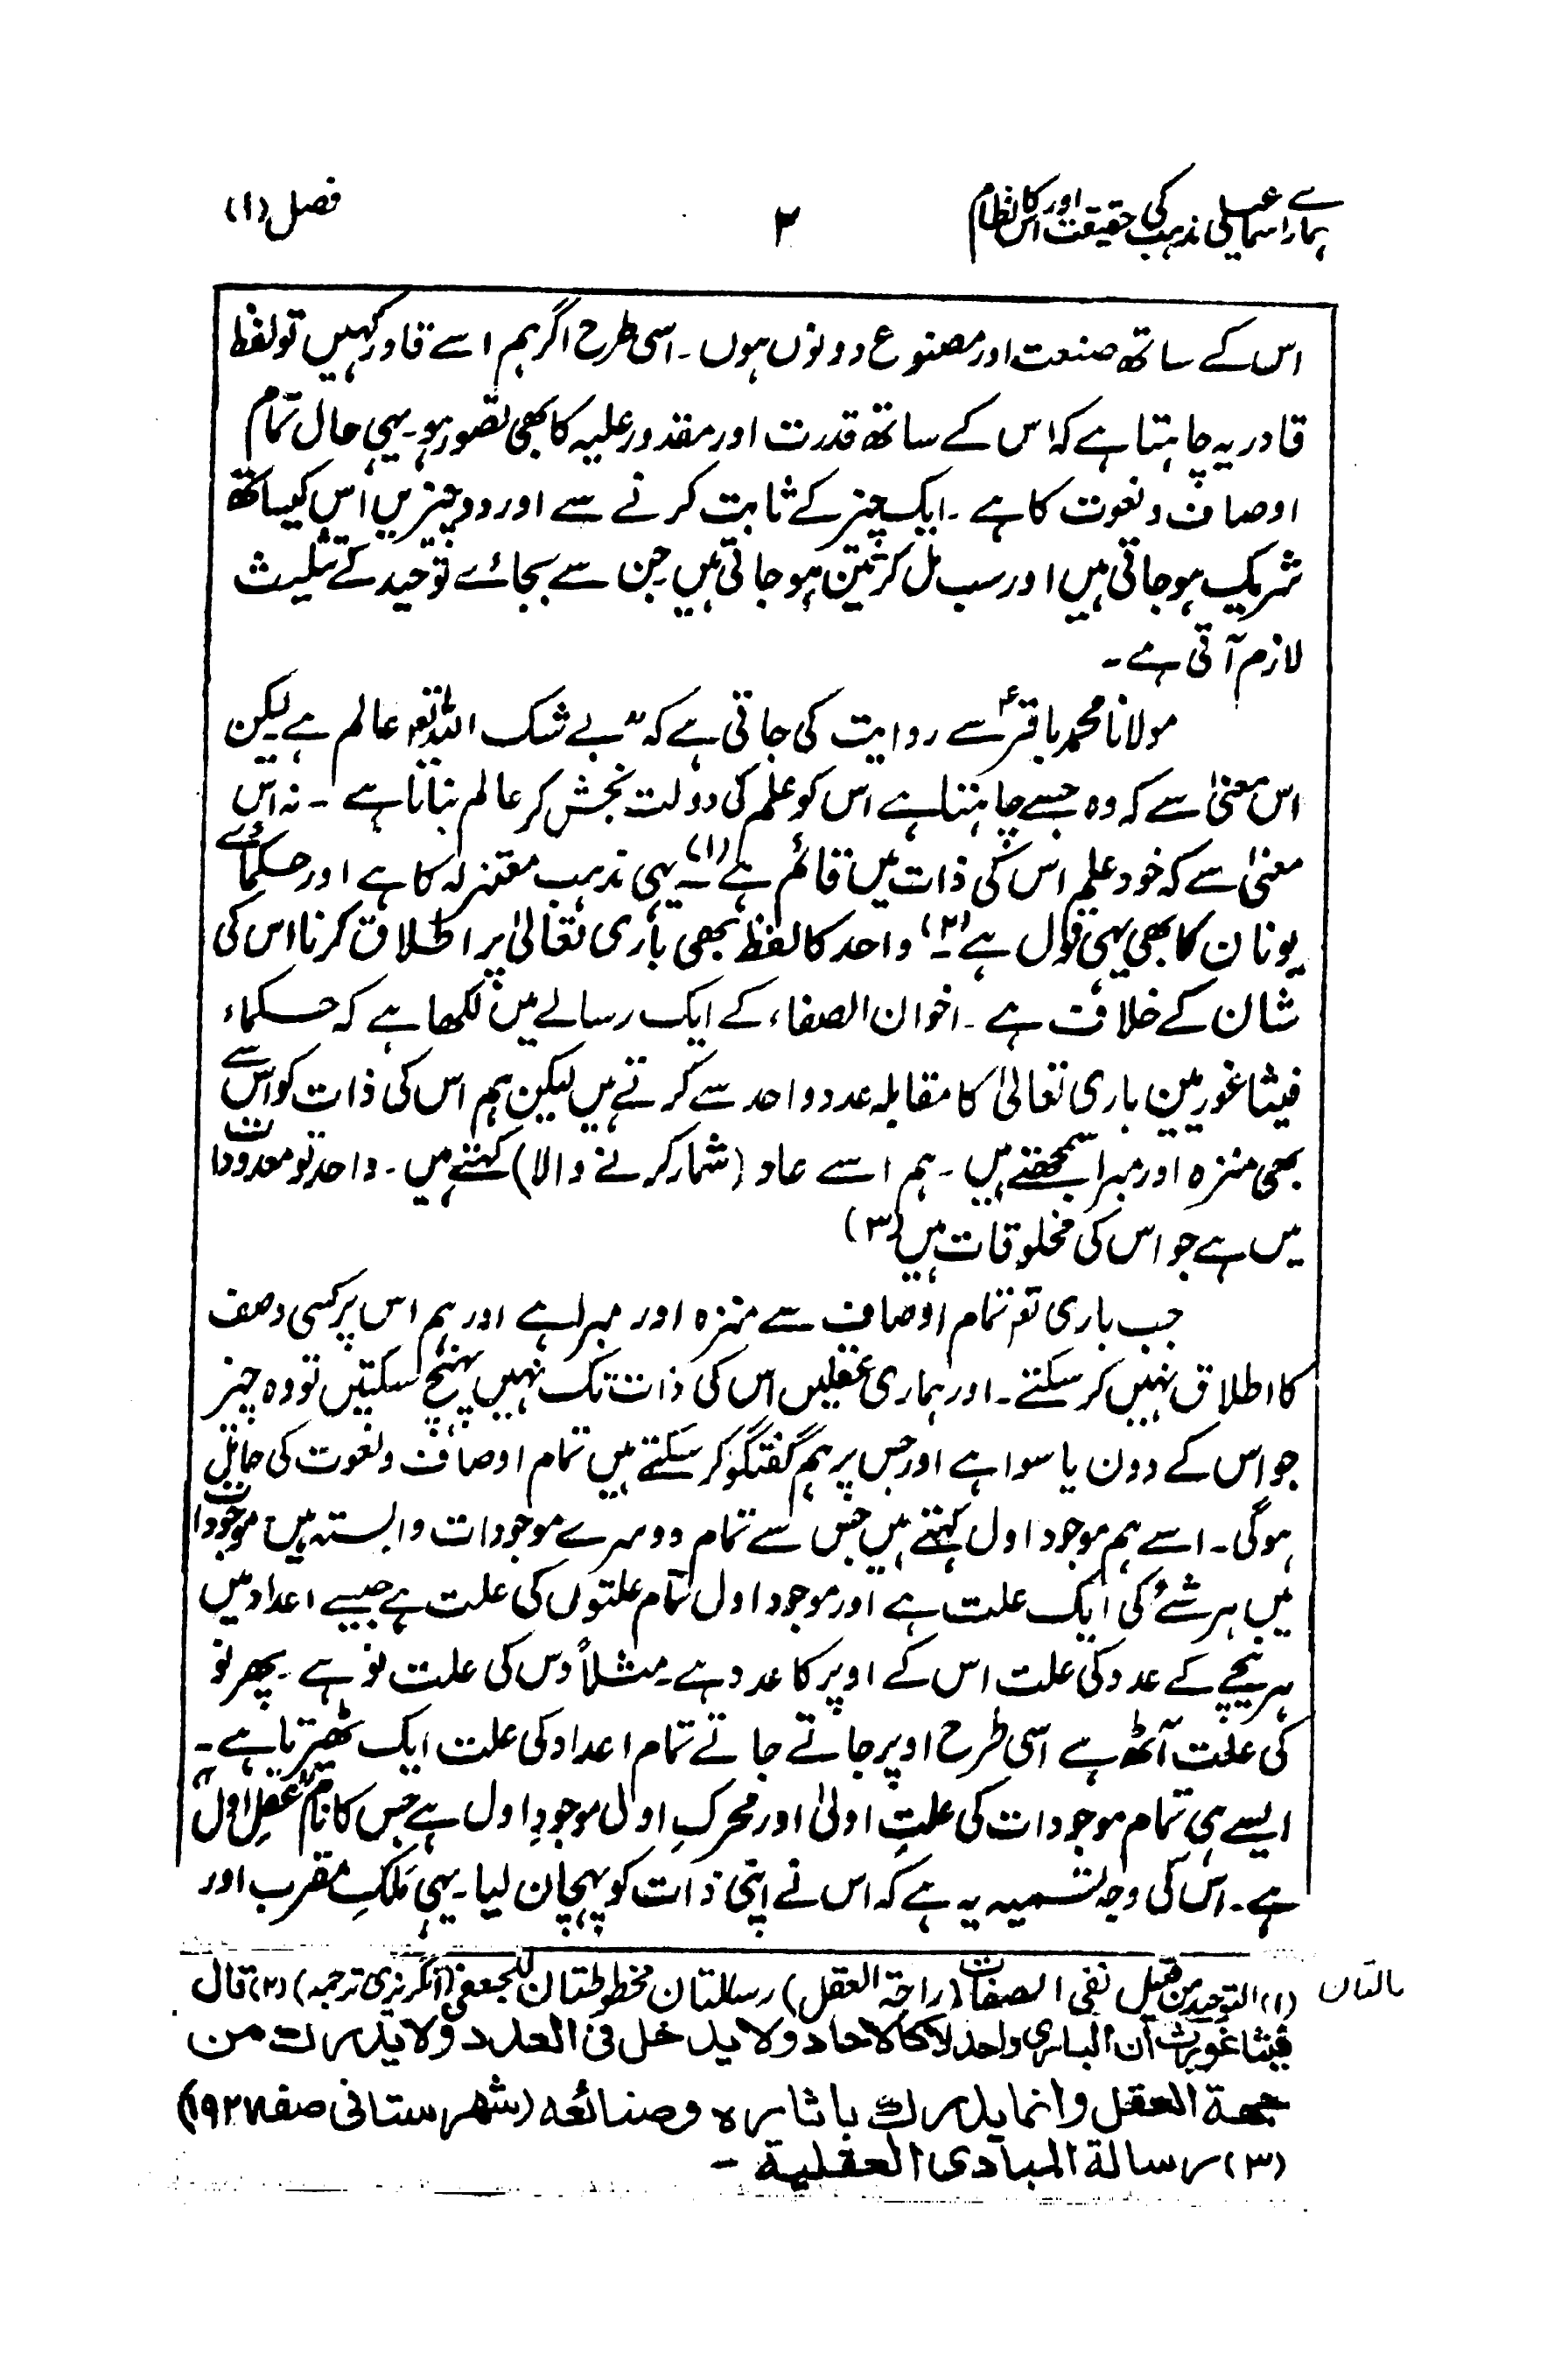 ہمارے اسماعیلی مذہب کی حقیقت اور اس کا نظام
۲
فصل (۱)
اس کے ساتھ صنعت اور مصنوع دونوں ہوں۔ اسی طرح اگر ہم اسے قادر کہیں تو لفظ
قادر یہ چاہتا ہے کہ اس کے ساتھ قدرت اور مقدور علیہ کا بھی تصور ہو۔ یہی حال تمام
اوصاف و نعوت کا ہے۔ ایک چیز کے ثابت کرنے سے اور دو چیزیں اس کیساتھ
شریک ہو جاتی ہیں اور سب مل کر تین ہو جاتی ہیں جن سے بجائے توحید کے تثلیث
لازم آتی ہے۔
مولانا محمد باقرؑ سے روایت کی جاتی ہے کہ "بے شک اللہ تعہ عالم ہے لیکن
اس معنیٰ سے کہ وہ جسے چاہتا ہے اس کو علم کی دولت بخش کر عالم بناتا ہے ۔ نہ اس
معنیٰ سے کہ خود علم اس کی ذات میں قائم ہے (۱)۔ یہی مذہب معتزلہ کا ہے اور حکمائے
یونان کا بھی یہی قول ہے (۲)۔ واحد کا لفظ بھی باری تعالیٰ پر اطلاق کرنا اس کی
شان کے خلاف ہے۔ اخوان الصفاء کے ایک رسالے میں لکھا ہے کہ حکماء
فیثاغوریین باری تعالیٰ کا مقابلہ عدد واحد سے کرتے ہیں لیکن ہم اس کی ذات کو اس سے
بھی منزہ اور مبرا سمجھتے ہیں۔ ہم اسے عاد (شمار کرنے والا) کہتے ہیں۔ واحد تو معدودات
میں ہے جو اس کی مخلوقات ہیں (۳)
جب باری تعہ تمام اوصاف سے منزہ اور مبرا ہے اور ہم اس پر کسی وصف
کا اطلاق نہیں کر سکتے۔ اور ہماری عقلیں اس کی ذات تک نہیں پہنچ سکتیں تو وہ چیز
جو اس کے دون یا سوا ہے اور جس پر ہم گفتگو کر سکتے ہیں تمام اوصاف و نعوت کی حامل
ہوگی۔ اسے ہم موجود اول کہتے ہیں جس سے تمام دوسرے موجودات وابستہ ہیں۔ موجودات
میں ہر شئے کی ایک علت ہے اور موجود اول تمام علتوں کی علت ہے جیسے اعداد میں
ہر نیچے کے عدد کی علت اس کے اوپر کا عدد ہے۔ مثلاً دس کی علت نو ہے۔ پھر نو
کی علت آٹھ ہے اسی طرح اوپر جاتے جاتے تمام اعداد کی علت ایک ٹھیرتا ہے۔
ایسے ہی تمام موجودات کی علتِ اولیٰ اور محرکِ اول موجودِ اول ہے جس کا نام "عقلِ اول"
ہے۔ اس کی وجہ تسمیہ یہ ہے کہ اس نے اپنی ذات کو پہچان لیا۔ یہی مَلکِ مقرب اور
(۱) التوحید من قبیل نفی الصفات (راحۃ العقل) رسالتان مخطوطتان للجعفی (انگریزی ترجمہ) (۲) قال
فیثاغورث ان الباری واحد لا کالاحاد ولا یدخل فی العدد ولا یدرک من
جہة العقل وانما یدرک باثارہ وصنائعہ (شہرستانی صفہ
(۳) رسالة المبادی العقلیة -